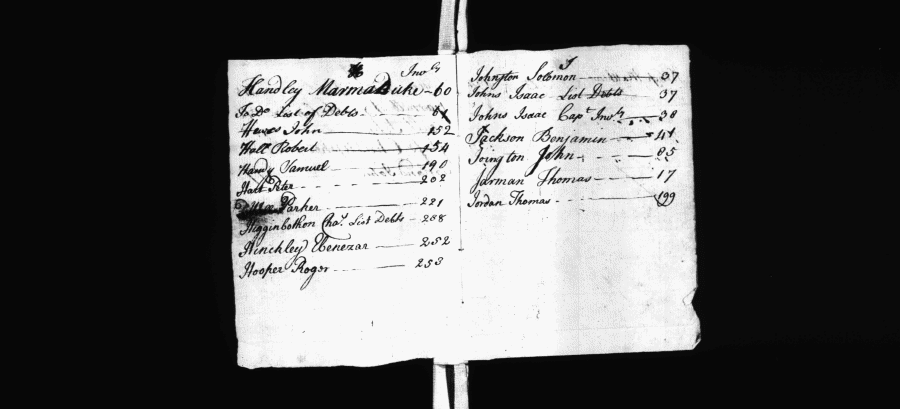 H
Invly
Handley Marmaduke - 60
To Do List of Debts - 61
Hewes John - 152
Hall Robert - 154
Handy Samuel - 190
Hart Peter - 202
Parker - 221
Higginbothon Chas. List Debts - 208
Hinchley Ebenezar - 252
Hooper Roger - 253
J
Johnston Solomon - 37
Johns Isaac List Debts 37
Johns Isaac Capt Invly - 38
Jackson Benjamin - 41
Joington John - 85
Jarman Thomas - 17
Jordan Thomas - 199